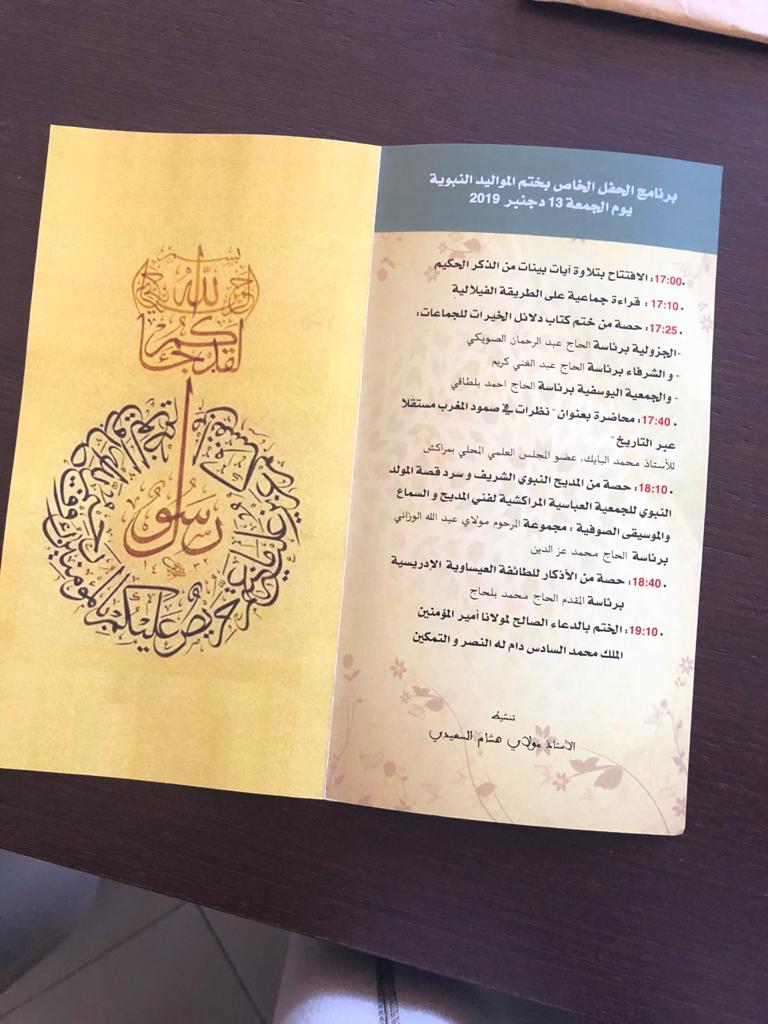 برنامج الحفل الخاص بختم المواليد النبوية
يوم الجمعة 13 دجنبر 2019
•17:00: الافتتاح بتلاوة آيات بينات من الذكر الحكيم
•17:10 : قراءة جماعية على الطريقة الفيلالية
•17:25: حصة من ختم كتاب دلائل الخيرات للجماعات:
-الجزولية برئاسة الحاج عبد الرحمان الصويكي
- و الشرفاء برئاسة الحاج عبد الغني كريم
- والجمعية اليوسفية برئاسة الحاج احمد بلطاقي
•17:40: محاضرة بعنوان " نظرات في صمود المغرب مستقلا
عبر التاريخ "
للأستاذ محمد البايك، عضو المجلس العلمي المحلي بمراكش
•18:10: حصة من المديح النبوي الشريف و سرد قصة المولد
النبوي للجمعية العباسية المراكشية لفني المديح و السماع
والموسيقى الصوفية : مجموعة المرحوم مولاي عبد الله الوزاني
برئاسة الحاج محمد عز الدين
•18:40: حصة من الأذكار للطائفة العيساوية الإدريسية
برئاسة المقدم الحاج محمد بلحاج
•19:10: الختم بالدعاء الصالح لمولانا أمير المؤمنين
الملك محمد السادس دام له النصر و التمكين
تنشيط
الأستاذ مولاي هشام السعيدي
بسم
الله
لقد جاءكم
رسول
١٤٣٢
حريص عليكم بالمؤمنين